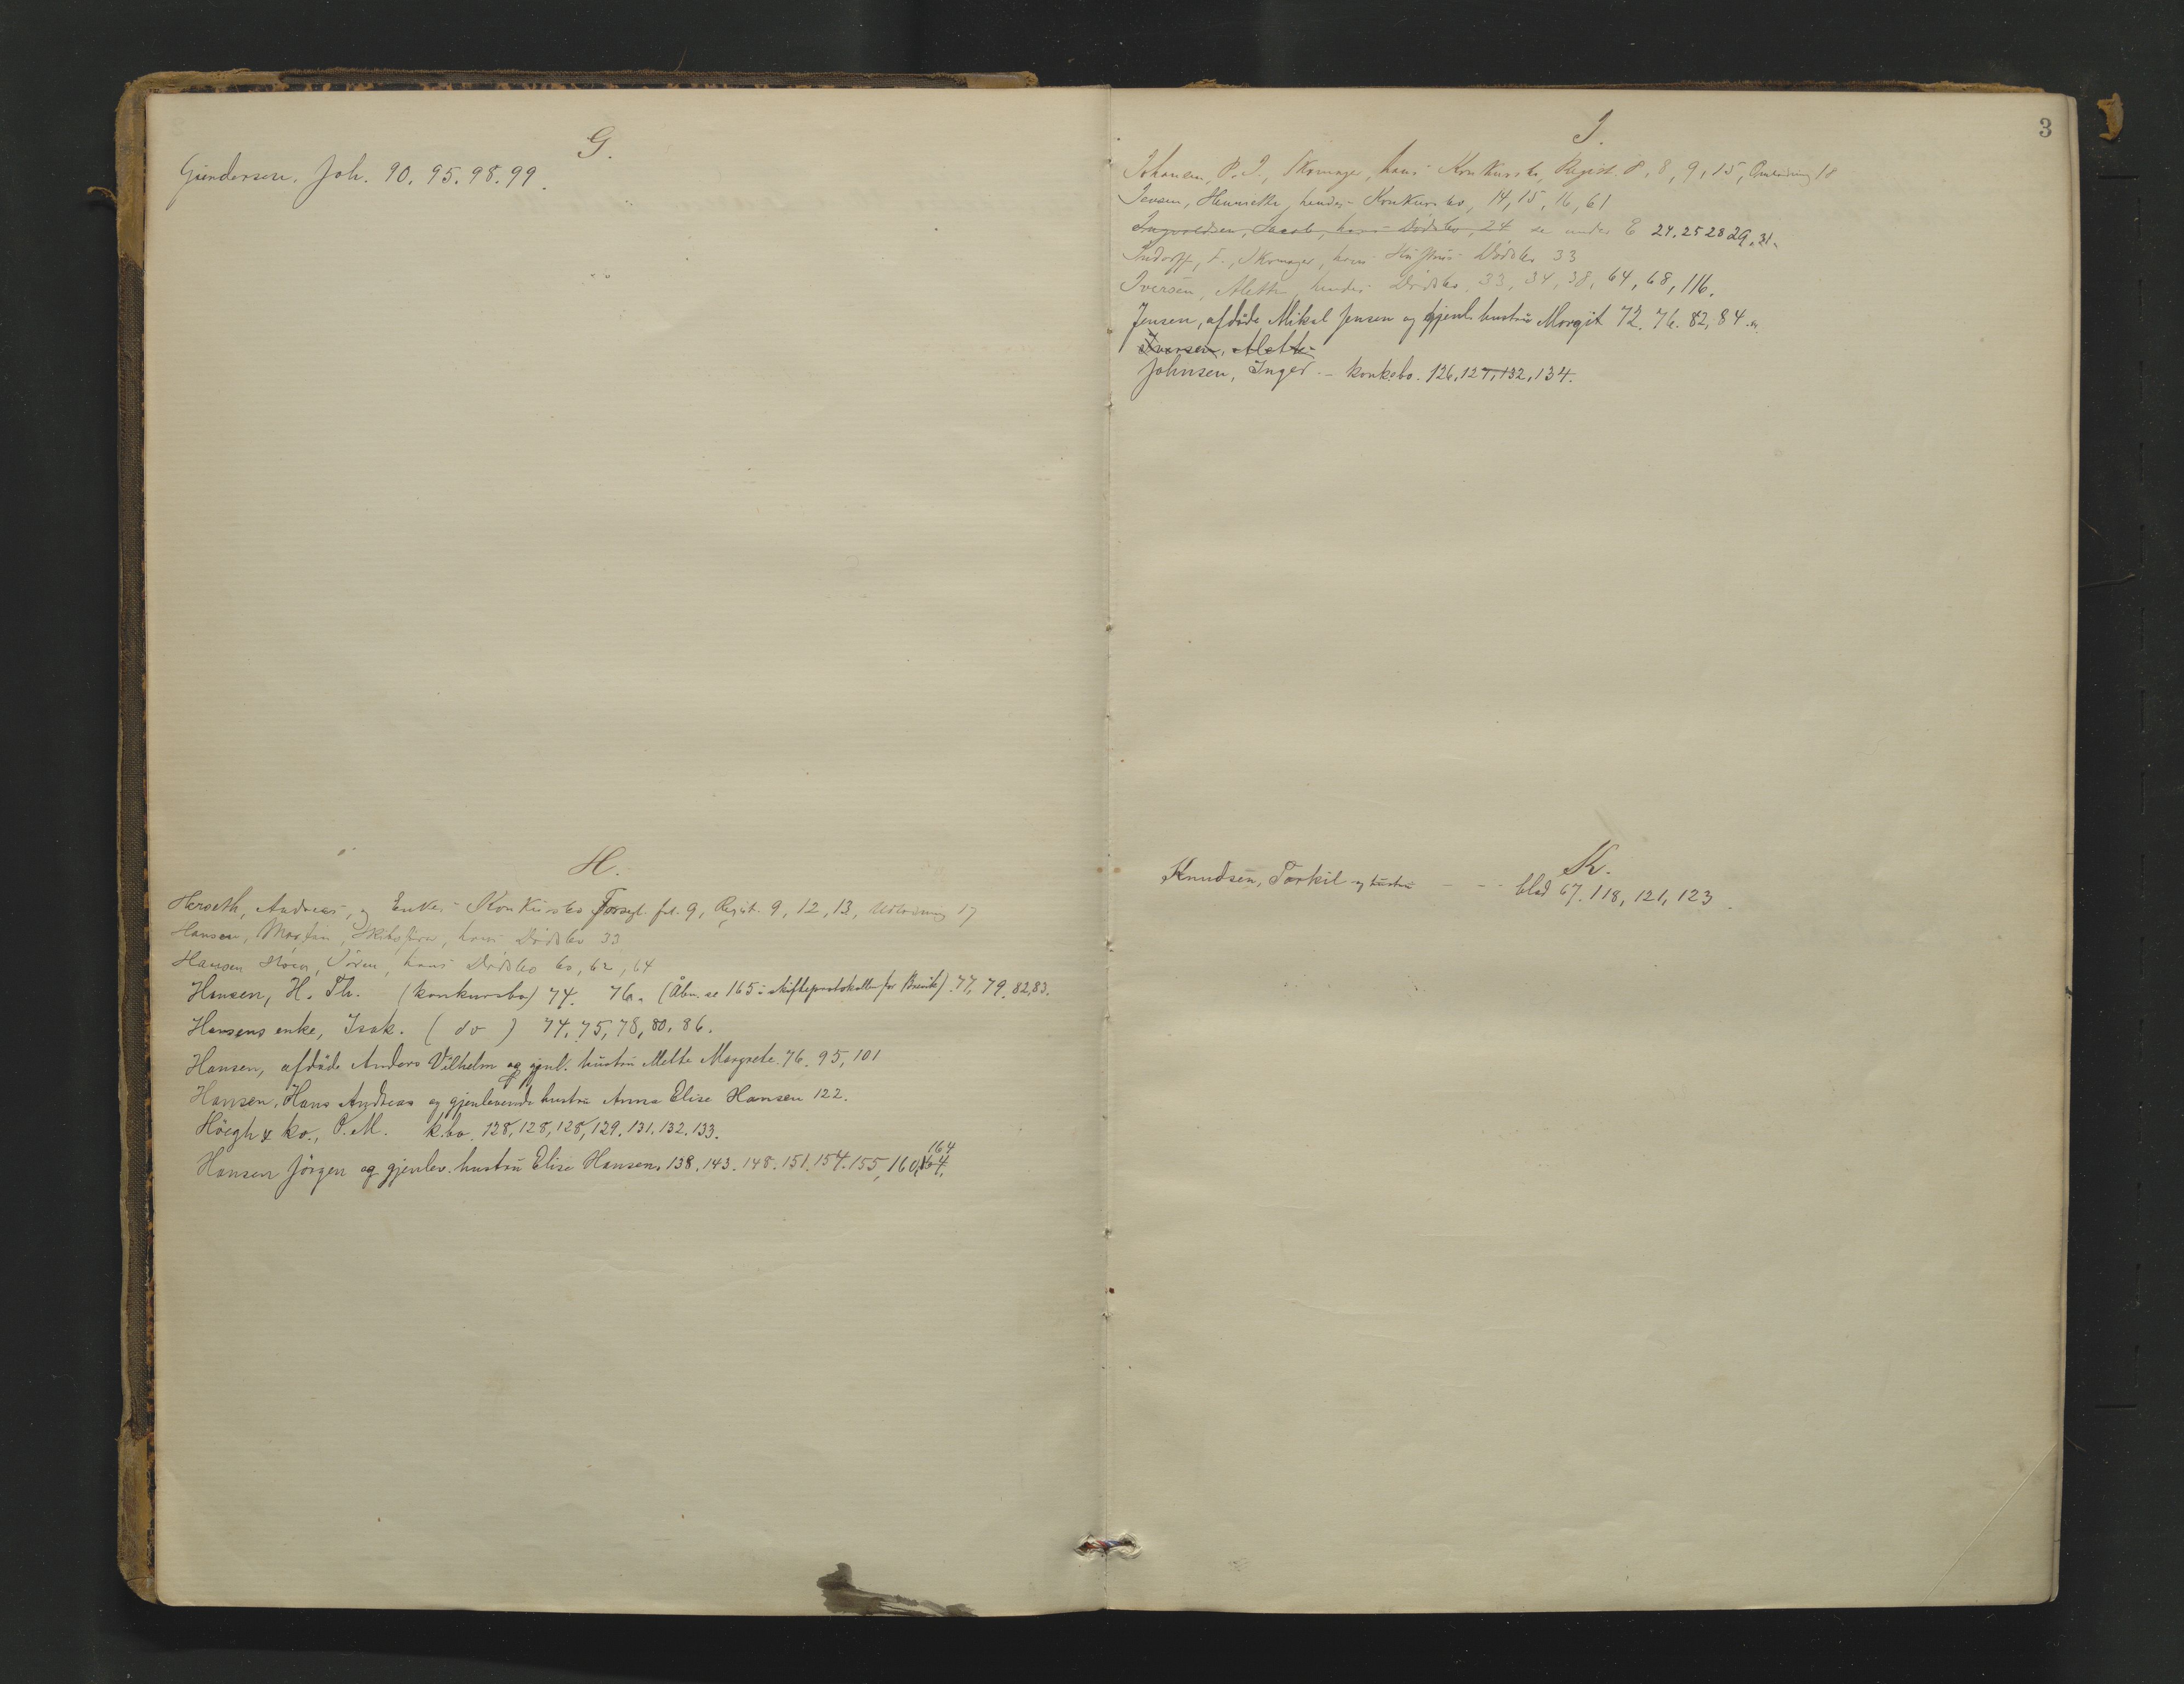 G.
Gundersen. Joh. 90. 95. 98. 99.
H.
Herseth, Andreas, og Enkes Konkursbo Forsegl. fol. 9, Regist. 9, 12, 13, Udlodning 17
Hansen, Martin, Skibsfører, hans Dødsbo 33
Hansen Moen, Søren, hans Dødsbo 60, 62, 64
Hansen, H. Th. (konkursbo) 74. 76. (Åbn. se 165 i skifteprotokollen for Brevik) 77, 79. 82, 83.
Hansens enke, Isak. (do) 74, 75, 78, 80, 86.
Hansen, afdøde Anders Vilhelm og gjenl. hustru Mette Margrete. 76. 95, 101
Hansen, Hans Andreas og gjenlevende hustru Anna Elise Hansen 122.
Höegh & ko., O. M. k.bo. 128, 128, 128, 129. 131. 132. 133.
Hansen Jörgen og gjenlev. hustru Elise Hansen. 138. 143. 148. 151. 154. 155, 160, 164
3
I.
Johansen, P. J., Skomager, hans Konkursbo, Regist. 8, 8, 9, 15, 18
Jensen, Henriette, hendes Konkursbo, 14, 15, 16, 61
Ingvoldsen, Jacob, hans Dødsbo, 24 se under E 24. 25 28 29. 31.
Indorff, F., Skomager, hans Hustrus Dødsbo 33
Iversen, Alette, hendes Dødsbo, 33, 34, 38, 64, 68, 116.
Jensen, afdöde Mikal Jensen og gjenl. hustru Margit 72. 76. 82, 84.
Iversen, Alette
Johnsen, Inger. – konk.bo. 126, 127, 132, 134.
K.
Knudsen, Torkil og hustru - - - blad 67. 118, 121, 123.